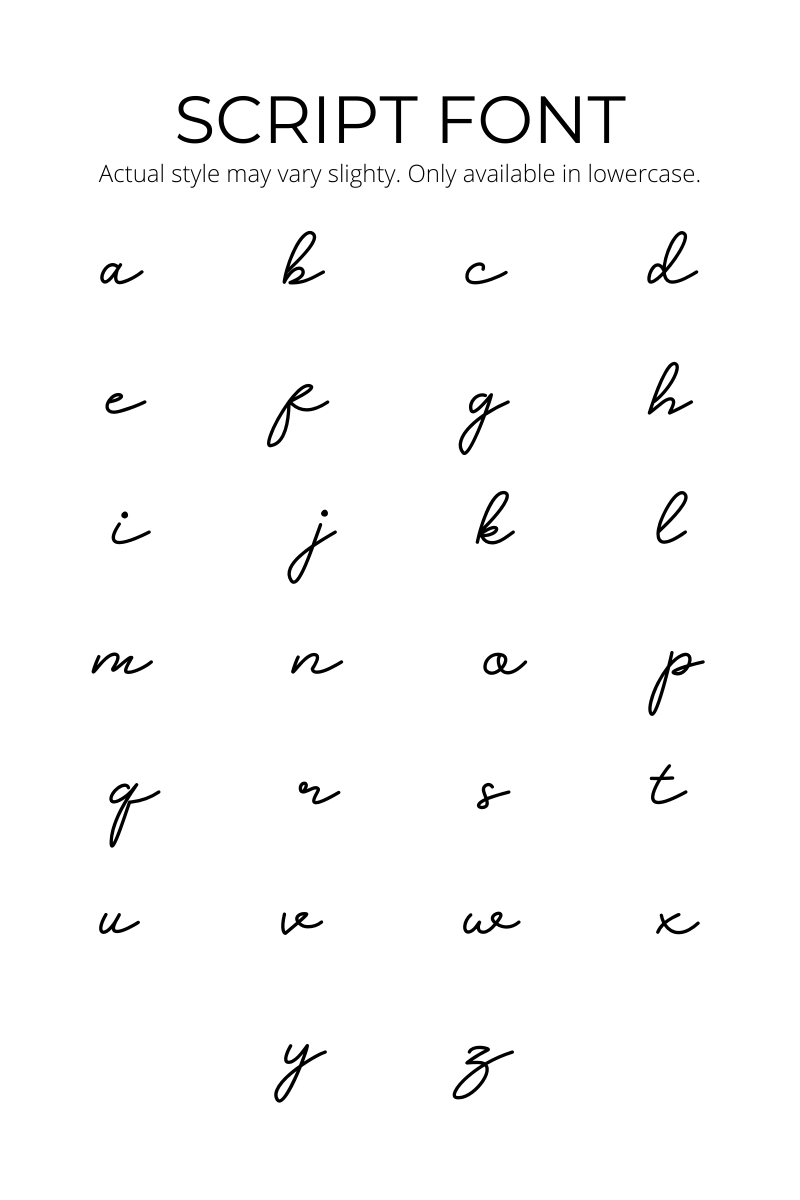 SCRIPT FONT
Actual style may vary slighty. Only available in lowercase.
a b c d
e f g h
i j k l
m n o p
q r s t
u v w x
y z